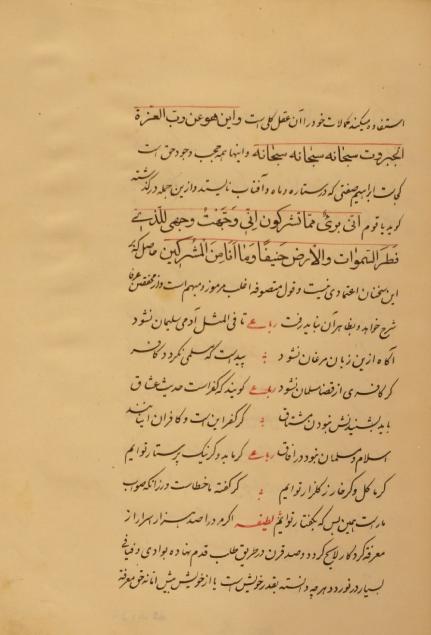 استفاده میکند کمالات خود را آن عقل کلی است و این هو عن رب العزة
الجبروت سبحانه سبحانه سبحانه و اینها همه حجب وجود حق است
کجاست ابراهیم صفتی که در ستاره و ماه و آفتاب نایستد و ازین جمله درگذشته
گوید یا قوم انی بریء مما تشرکون انی وجهت وجهی للذی
فطر السموات والارض حنیفا وما انا من المشرکین حاصل که بر
این سخنان اعتمادی نیست و قول متصوفه اغلب مرموز و مبهم است و از محققین عرفا
شرح خواهد و بظاهر آن نباید رفت رباعی تا فی المثل آدمی سلیمان نشود
آگاه ازین زبان مرغان نشود پیداست که مسلمی نگردد کافر
گر کافری از قضا مسلمان نشود رباعی گویند که کفر است حدیث عشاق
باید نبودن مشتاق گر کفر این است و کافران اینانند
اسلام و مسلمان نبود در آفاق رباعی گر ما بد و گر نیک پرستار توایم
گر ما گل و گر خار ز گلزار توایم گر گفته ما خطاست ور زانکه صواب
ما راست همین بس که بگفتار توایم لطیفه اگرم در صد هزار اسرار از
معرفة کردگار لایح گردد و صد قرن در طریق طلب قدم نهاده بوادی و فیافی
بسیار در نوردد هرچه دانسته بقدر خویش است یا از خویش بیش اما نه حق معرفة